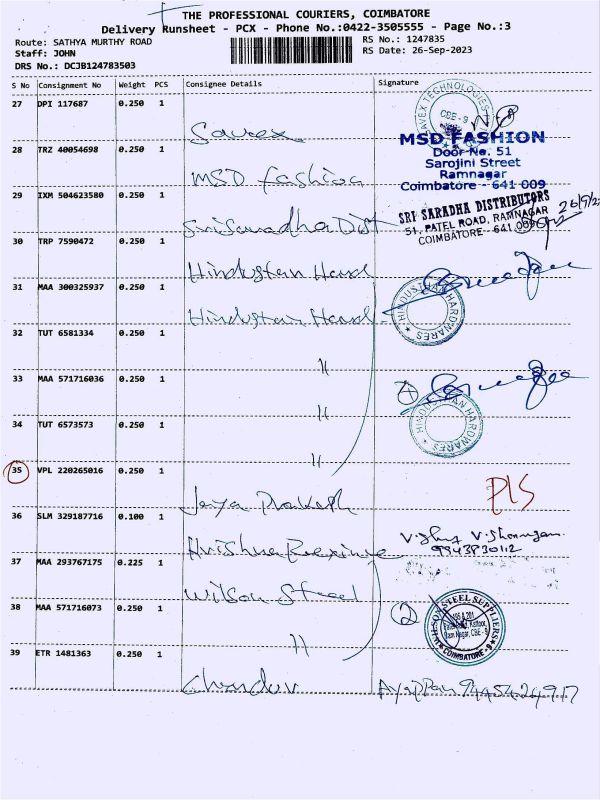 THE PROFESSIONAL COURIERS, COIMBATORE
Delivery Runsheet - PCX - Phone No.:0422-3505555 - Page No.:3
Route: SATHYA MURTHY ROAD
Staff: JOHN
DRS No.: DCJB124783503
RS No.: 1247835
RS Date: 26-Sep-2023
S No Consignment No Weight PCS Consignee Details Signature
27 DPI 117687 0.250 1
Savex
SAVEX TECHNOLOGIES
CBE - 9
28 TRZ 40054698 0.250 1
MSD fashion
MSD FASHION
Door No. 51
Sarojini Street
Ramnagar
Coimbatore - 641 009
29 IXM 504623580 0.250 1
Sri Saradha Dist
SRI SARADHA DISTRIBUTORS
51, PATEL ROAD, RAMNAGAR
COIMBATORE - 641 009
30 TRP 7590472 0.250 1
Hindustan Hard
31 MAA 300325937 0.250 1
Hindustan Hard
HINDUSTHAN HARDWARES
32 TUT 6581334 0.250 1
"
33 MAA 571716036 0.250 1
"
4
HINDUSTHAN HARDWARES
34 TUT 6573573 0.250 1
"
35 VPL 220265016 0.250 1
Jaya Prakash
PLS
36 SLM 329187716 0.100 1
9843830112
37 MAA 293767175 0.225 1
Wilson Steel
38 MAA 571716073 0.250 1
"
2
STEEL SUPPLIERS
Ram Nagar, CBE - 9
COIMBATORE - 9
39 ETR 1481363 0.250 1
Chandru
Ayappan